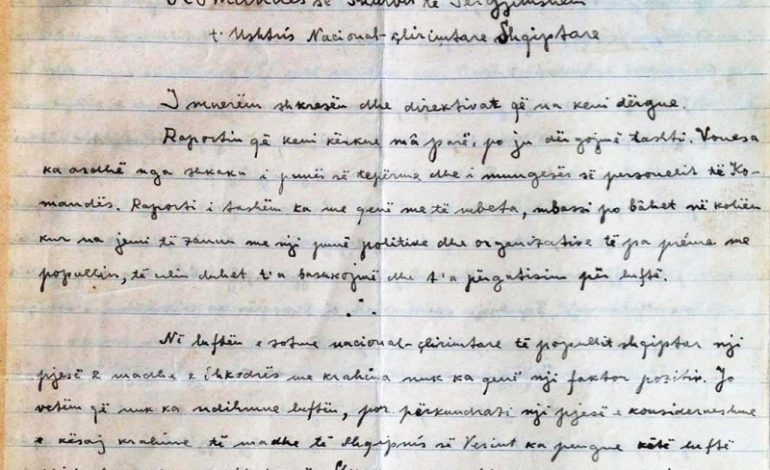 Komandës së Shtabit të Përgjithshëm
t' Ushtris Nacional-çlirimtare Shqiptare
I muerëm shkresën dhe direktivat që na keni dërgue.
Raportin që keni kërkue mâ parë, po ju dërgojmë tashti. Vonesa
ka ardhë nga shkaku i punës së tepërme dhe i mungesës së personelit të Ko-
mandës. Raporti i tashëm ka me qenë me të mbeta, mbassi po bâhet në kohën
kur na jemi të zanun me nji punë politike dhe organizative të pa préme me
popullin, të cilin duhet t'a bashkojmë dhe t'a përgatisim për luftë.
Në luftën e sotme nacional-çlirimtare të popullit shqiptar nji
pjesë e madhe e Shkodrës me krahina nuk ka qenë nji faktor pozitiv. Jo
vetëm që nuk ka ndihmue luftën, por përkundrazi nji pjesë e konsiderueshme
e kësaj krahine të madhe të Shqipnís së Veriut ka pengue këtë luftë